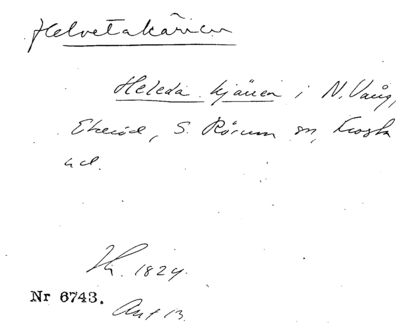 Helvetakärren
Heleda kjären i N. Vång,
Ekeröd, S. Rörum sn, Frosta
hd.
Hk. 1824.
Nr 6743.
Ant 13.